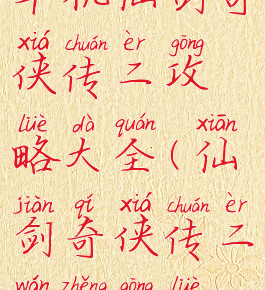 单机仙剑奇
xiá chuán èr gōng
侠传二攻
lüè dà quán xiān
略大全(仙
jiàn qí xiá chuán èr
剑奇侠传二
wán zhěng gōng lüè